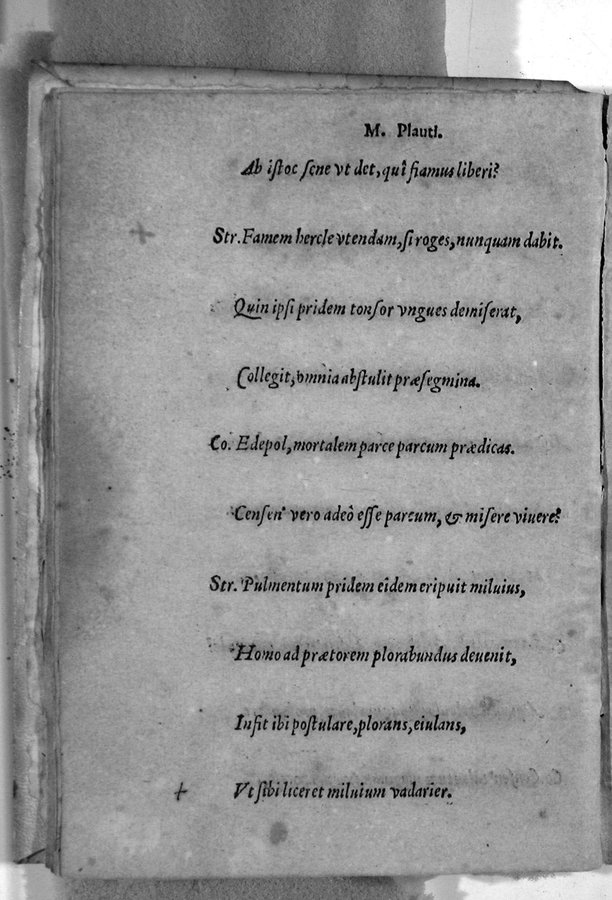 M. Plauti.
Ab istoc sene vt det, quî fiamus liberi?
Str. Famem hercle vtendam, si roges, nunquam dabit.
Quin ipsi pridem tonsor vngues demiserat,
Collegit, omnia abstulit præsegmina.
Co. Edepol, mortalem parce parcum prædicas.
Censen' vero adeô esse parcum, & misere viuere?
Str. Pulmentum pridem eîdem eripuit miluius,
Homo ad prætorem plorabundus deuenit,
Infit ibi postulare, plorans, eiulans,
Vt sibi liceret miluium vadarier.